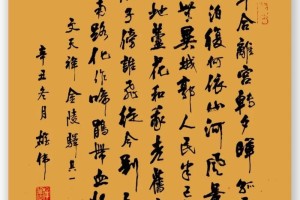 合離宮轉夕暉孤
泊復何依山河風景
無異城郭人民半已
地蘆花和我老舊
子傍誰飛從今別
南路化作啼鵑帶血
文天祥金陵驛其一
辛丑冬月雄偉